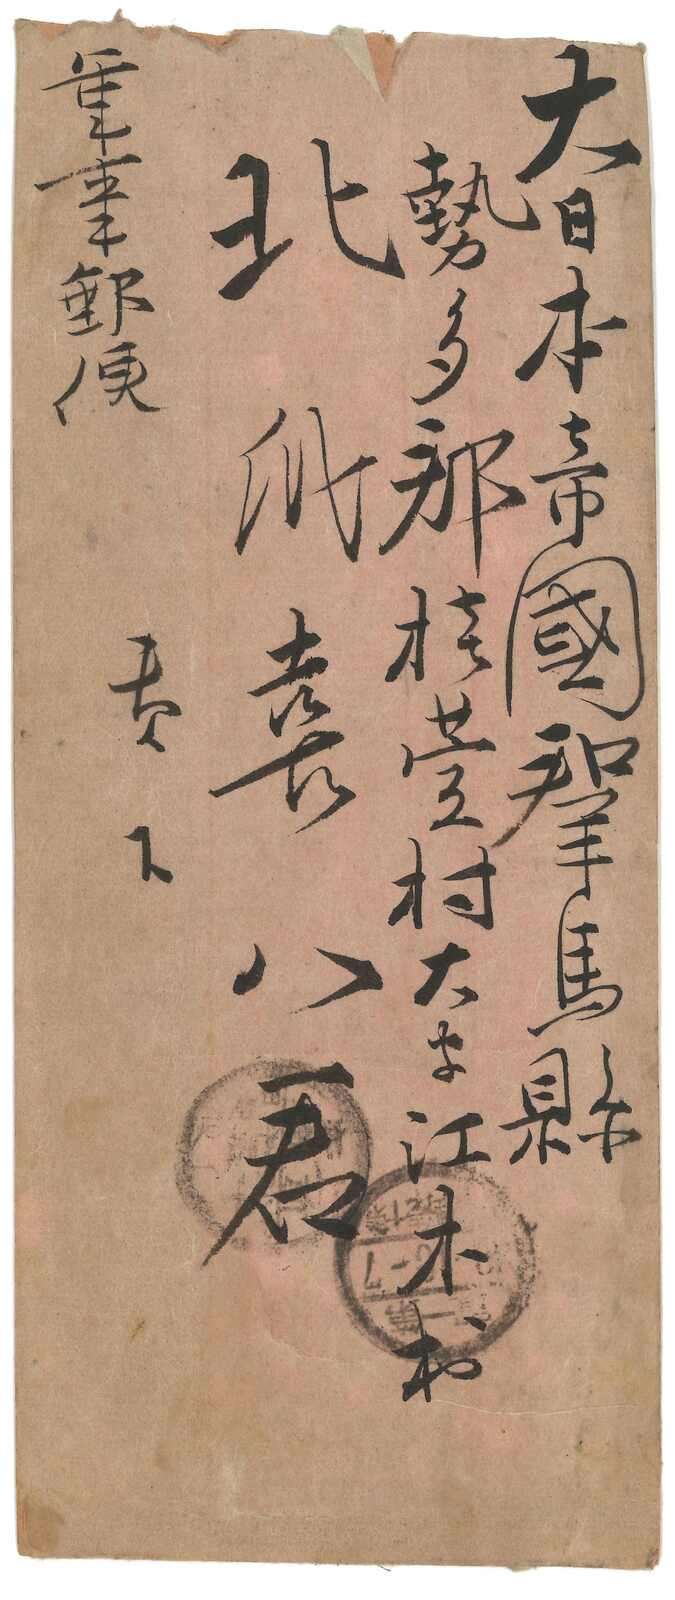 大日本帝國羣馬縣
勢多郡桂萱村大字江木村
北爪喜八君
貴下
軍事郵便